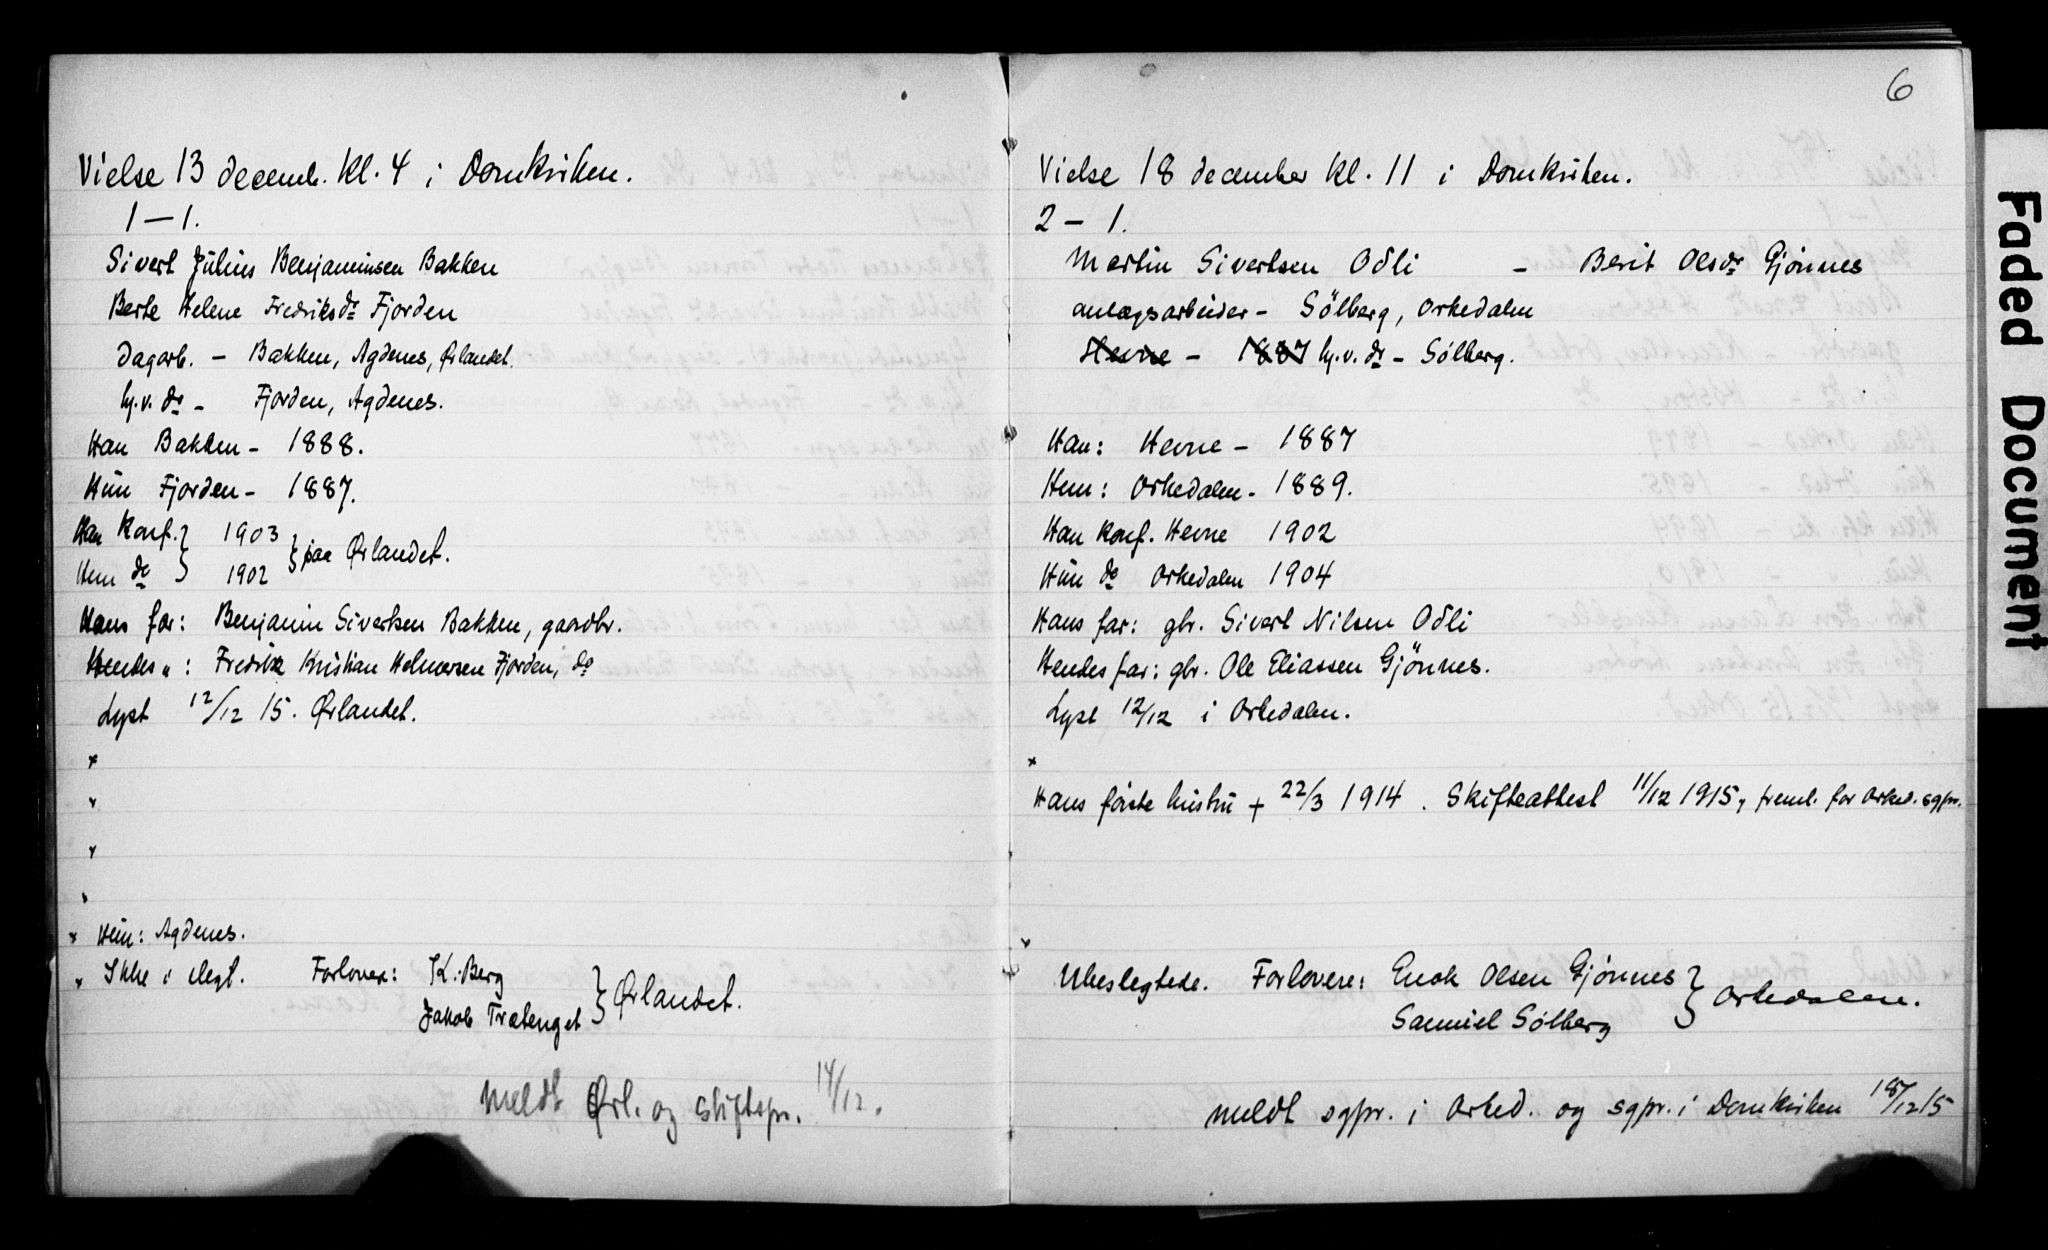 Vielse 13 decemb. kl. 4 i Domkirken.
1 – 1.
Sivert Julius Benjaminsen Bakken
Berte Helene Fredriksdr Fjorden
Dagarb. – Bakken, Agdenes, Ørlandet.
hj.v. do – Fjorden, Agdenes.
Han Bakken – 1888.
Hun Fjorden – 1887.
Han konf. } 1903 } paa Ørlandet.
Hun do } 1902
Hans far: Benjamin Sivertsen Bakken, gaardbr.
Hendes „ : Fredrik Kristian Helmersen Fjorden, do
Lyst 12/12 15. Ørlandet.
Hun: Agdenes.
Ikke i slegt. Forlovere: K. Berg } Ørlandet.
Jakob Trætenget
meldt Ørl. og stiftspr. 14/12.
6
Vielse 18 december kl. 11 i Domkirken.
2 – 1.
Martin Sivertsen Odli – Berit Olsdr Gjönnes
anlægsarbeider – Sölberg, Orkedalen
Hevne – 1887 hj.v. dr – Sölberg.
Han: Hevne – 1887
Hun: Orkedalen – 1889.
Han konf. Hevne 1902
Hun do Orkedalen 1904
Hans far: gbr. Sivert Nilsen Odli
Hendes far: gbr. Ole Eliassen Gjönnes.
Lyst 12/12 i Orkedalen.
Hans förste hustru + 22/3 1914. Skifteattest 11/12 1915, freml. for Orked. sgpr.
Ubeslegtede. Forlovere: Enok Olsen Gjönnes } Orkedalen.
Samuel Sölberg
meldt sgpr. i Orked. og sgpr. i Domkirken 18/12 15
Faded Document